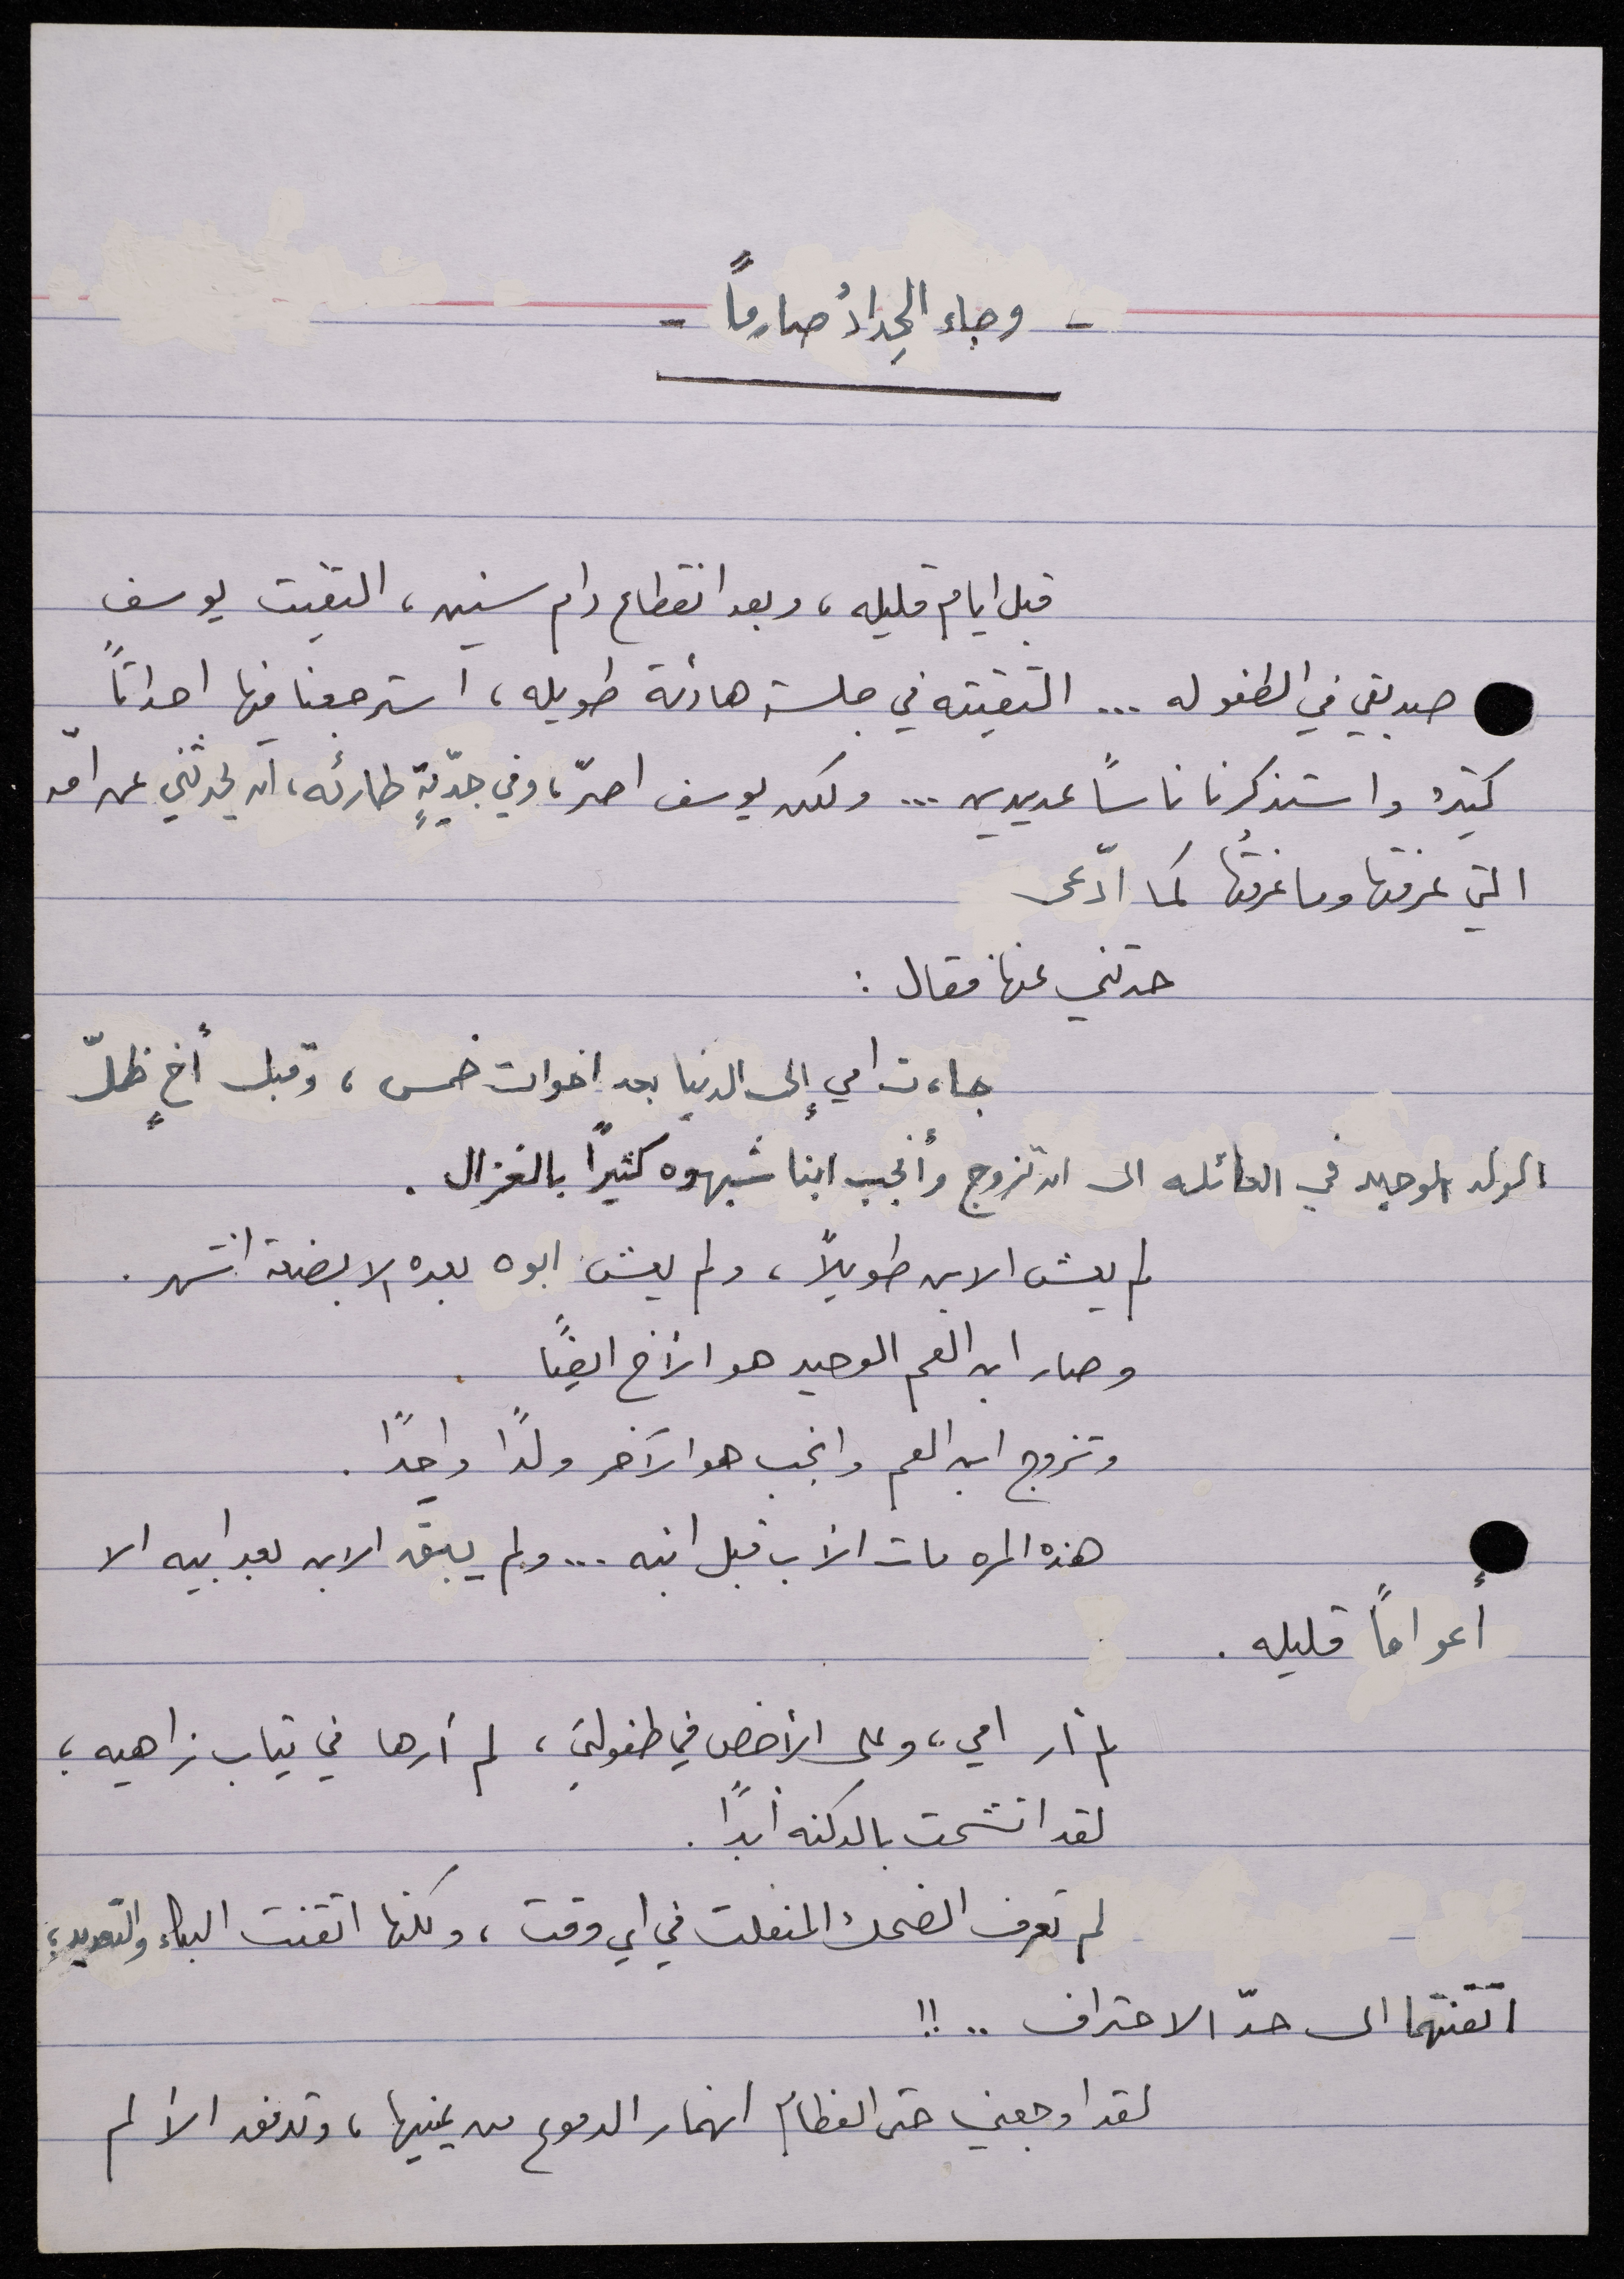 - وجاء الحِدادُ صارماً -
قبل ايام قليله، وبعد انقطاع دام سنين، التقيت يوسف
صديقي في الطفوله ... التقيته في جلسة هادئة طويله، استرجعنا فيها احداثاً
كثيرة واستذكرنا ناساً عديدين ... ولكن يوسف اصرّ، وفي جدّيةٍ طارئه، ان يحدثني عن امّه
التي عرفتها وما عرفتُها كما ادّعى
حدثني عنها فقال :
جاءت امي إلى الدنيا بعد اخوات خمس، وقبل أخٍ ظلّ
الولد الوحيد في العائله الى ان تزوج وأنجب ابنا شبهوه كثيرًا بالغزال .
لم يعش الابن طويلاً، ولم يعش ابوه بعده الا بضعة اشهر .
وصار ابن العم الوحيد هو الأخ ايضًا .
وتزوج ابن العم وانجب هو الآخر ولدًا واحدًا .
هذه المره مات الأب قبل ابنه ... ولم يبق الابن بعد ابيه الا
أعواماً قليله .
لم أر امي، وعلى الأخص في طفولتي، لم أرها في ثياب زاهيه ؛
لقد اتشحت بالدكنه أبدًا .
لم تعرف الضحك المنفلت في اي وقت، ولكنها اتقنت البكاء والتعديد ؛
اتقنتهما الى حدّ الاحتراف .. !!
لقد اوجعني حتى العظام انهمار الدموع من عينيها، وتدفق الألم